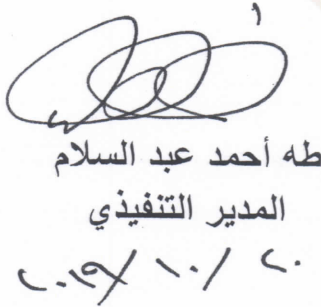 طه أحمد عبد السلام
المدير التنفيذي
٢٠١٩/ ١٠/ ٢٠